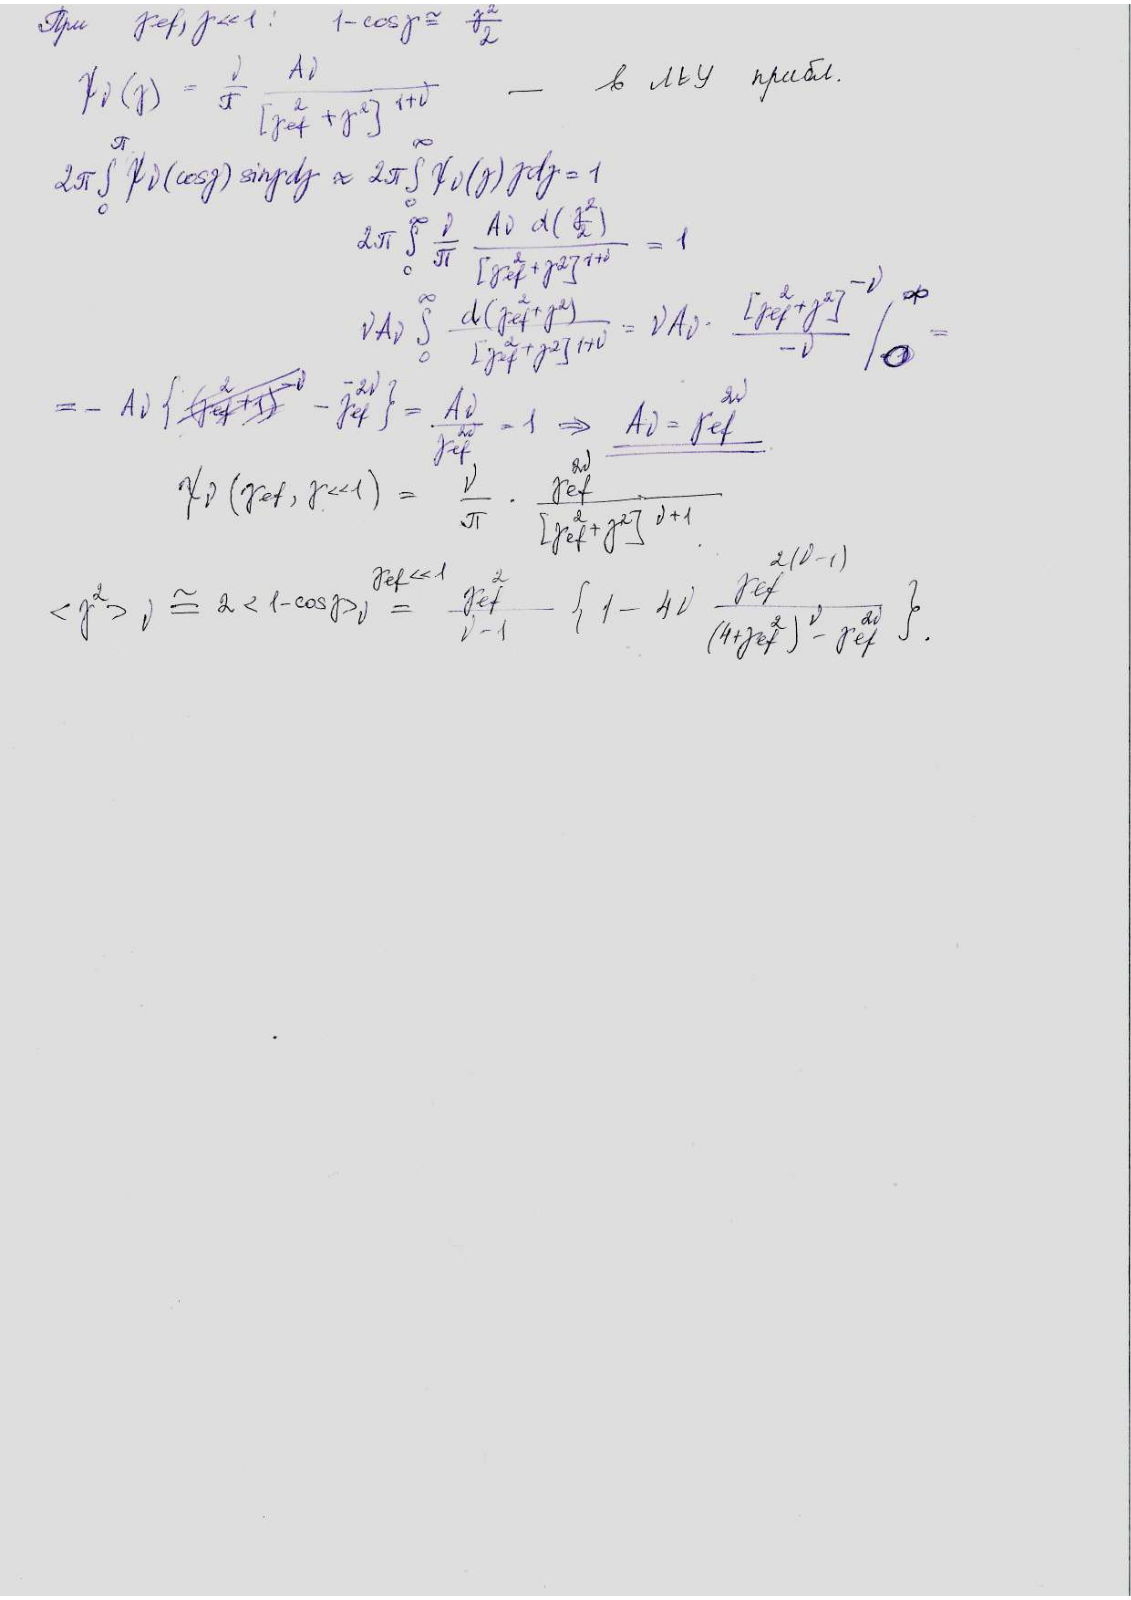 При γef, γ<<1: 1-cosγ ≅ γ²/2
ψν(γ) = ν/π Aν/[γef²+γ²]^(1+ν) — в МУ прибл.
2π∫₀^π ψν(cosγ) sinγdγ ≈ 2π∫₀^∞ ψν(γ) γdγ = 1
2π∫₀^∞ ν/π Aν d(γ²/2)/[γef²+γ²]^(1+ν) = 1
νAν∫₀^∞ d(γef²+γ²)/[γef²+γ²]^(1+ν) = νAν · [γef²+γ²]^(-ν)/-ν |₀^∞ =
= - Aν{ - γef^(-2ν)} = Aν/γef^(2ν) = 1 ⇒ Aν = γef^(2ν)
ψν(γef, γ<<1) = ν/π · γef^(2ν)/[γef²+γ²]^(ν+1)
<γ²>ν ≅ 2<1-cosγ>ν =^(γef<<1) γef²/(ν-1) {1 - 4ν γef^(2(ν-1))/((4+γef²)^ν - γef^(2ν))}.